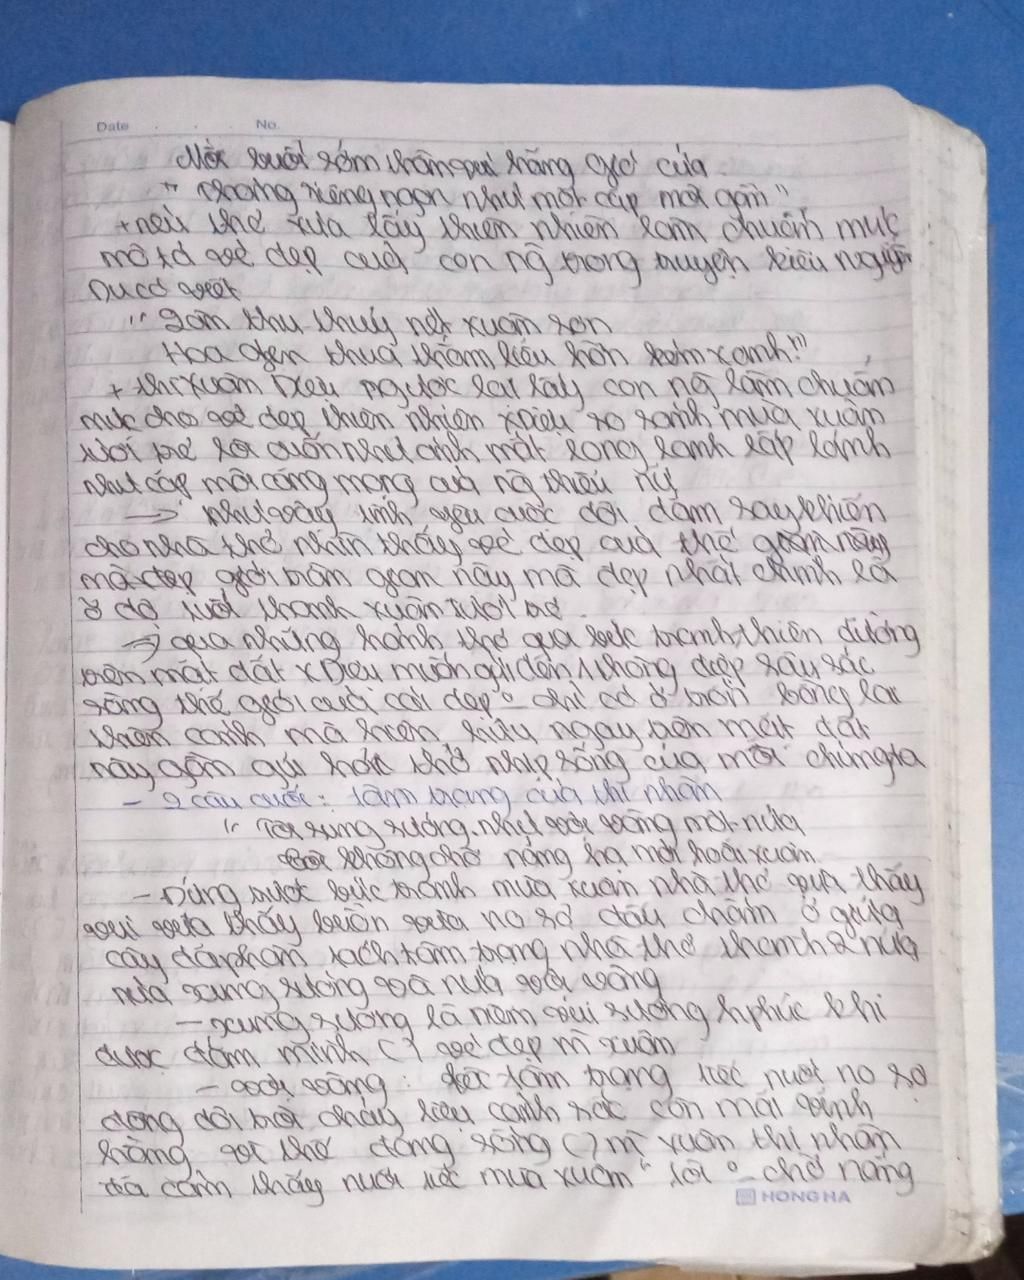 Date No.
Mỗi buổi sớm thần vui hằng gõ cửa
" tháng riêng ngon như một cặp môi gần "
+ nếu thơ xưa lấy thiên nhiên làm chuẩn mực
mô tả vẻ đẹp của con ng trong truyện kiều nguyễn
Du có viết
" Làn thu thuỷ nét xuân sơn
Hoa ghen thua thắm, liễu hờn kém xanh "
+ thì Xuân Diệu ngược lại lấy con ng làm chuẩn
mực cho vẻ đẹp thiên nhiên xDiệu so sánh mùa xuân
lôi cuốn như ánh mắt long lanh lấp lánh
như cặp môi căng mọng của ng thiếu nữ
→ như vậy tình yêu cuộc đời đắm say khiến
cho nhà thơ nhìn thấy vẻ đẹp của thế gian này
mà đẹp nhất chính là
ở độ tuổi thanh xuân
→ qua những hành thơ qua bức tranh thiên đường
trên mặt đất xDiệu muốn gửi đến thông điệp sâu sắc
rằng thế giới của cái đẹp o chỉ có ở bồng lai
thiên cảnh mà hiện hữu ngay trên mặt đất
này gần gũi hơi thở nhịp sống của mỗi chúng ta
- 2 câu cuối: tâm trạng của thi nhân
" Tôi sung sướng. nhưng vội vàng một nửa
Tôi không chờ nắng hạ mới hoài xuân
- Đứng trước bức tranh mùa xuân nhà thơ vừa thấy
vui vừa thấy buồn vừa lo sợ dấu chấm ở giữa
câu đã phân tách tâm trạng nhà thơ thành 2 nửa
nửa sung sướng và nửa vội vàng
- sung sướng là niềm vui sướng hphúc khi
được đắm mình ( ) vẻ đẹp m xuân
- vội vàng: tâm trạng tiếc nuối lo sợ
dòng đời trôi chảy liệu cảnh sắc còn mãi vĩnh
hằng vì thế đang sống ( ) m xuân thi nhân
đã cảm thấy nuối tiếc mùa xuân " tôi o chờ nắng
HONG HA